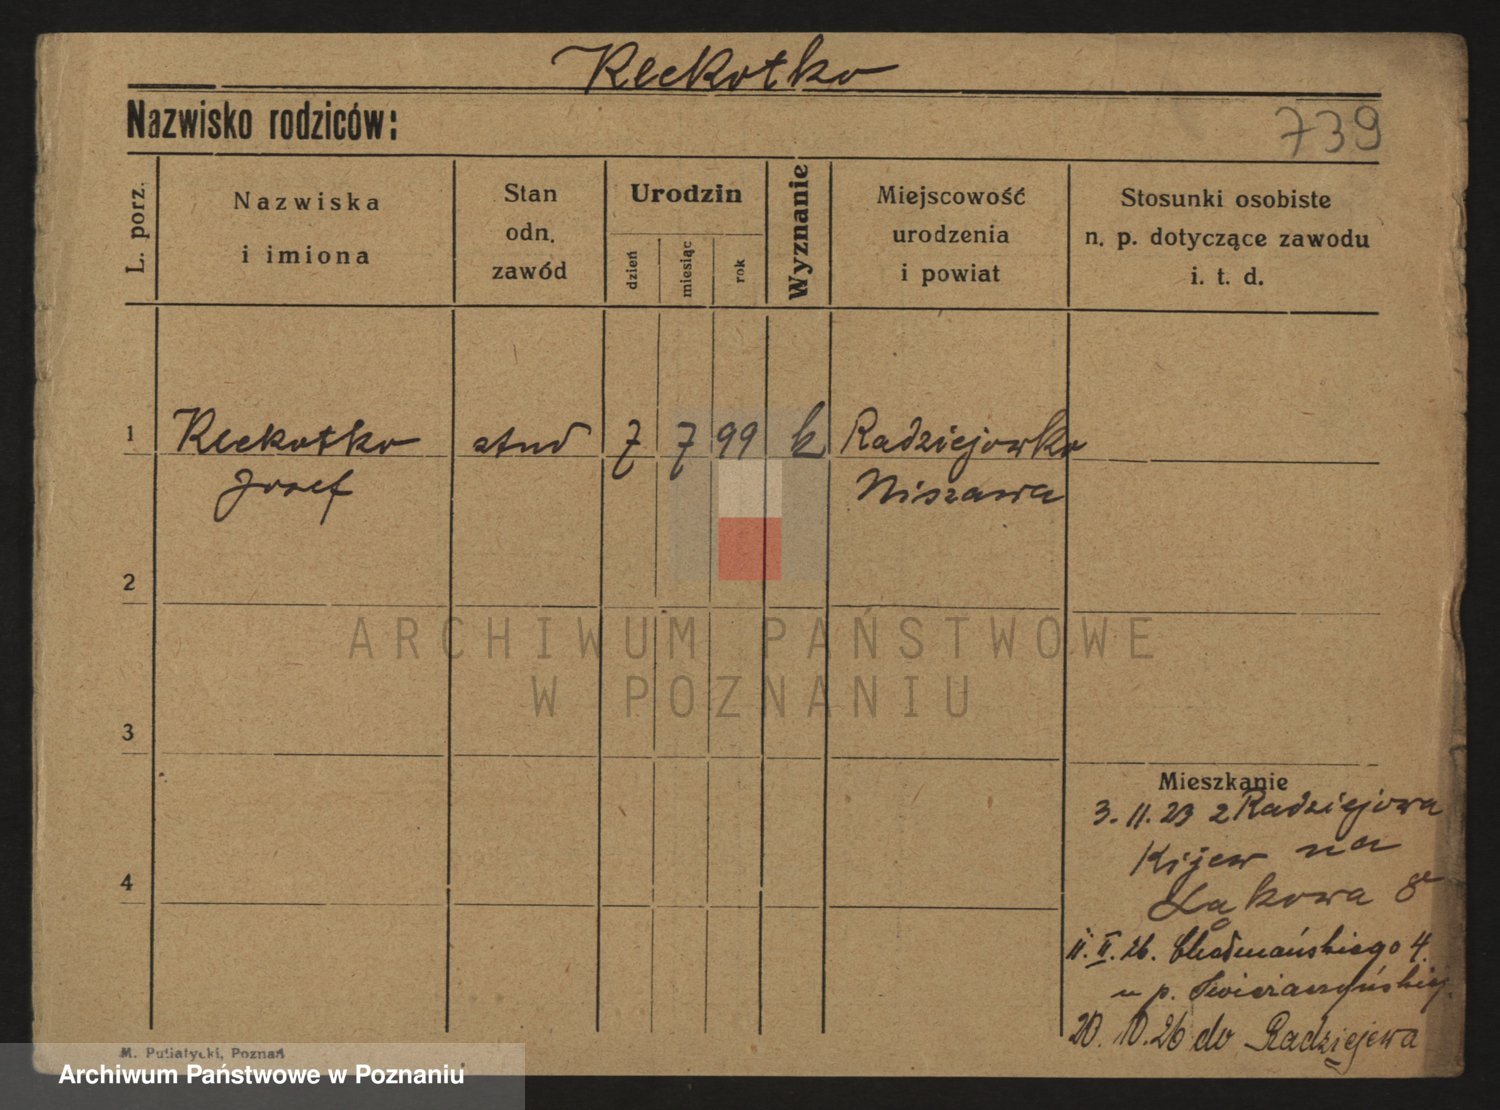 Kleckotko
Nazwisko rodziców:
739
L. porz.
Nazwiska
i imiona
Stan
odn.
zawód
Urodzin
dzień
miesiąc
rok
Wyznanie
Miejscowość
urodzenia
i powiat
Stosunki osobiste
n. p. dotyczące zawodu
i. t. d.
1 Kleckotko stud 7 7 99 k Radziejowko
Josef Niszawa
2
ARCHIWUM PAŃSTWOWE
W POZNANIU
3
Mieszkanie
3. 11. 23 z Radziejowa
Kijew na
4
Łąkowa 8
11. II. 26. 4.
u p.
20. 10. 26 do Radziejewa
M. Putiatycki, Poznań
Archiwum Państwowe w Poznaniu